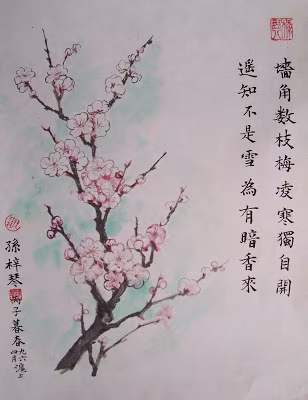 墻角数枝梅凌寒獨自開
遥知不是雪為有暗香來
孫梓琴
丙子暮春
九六
四月
滬上